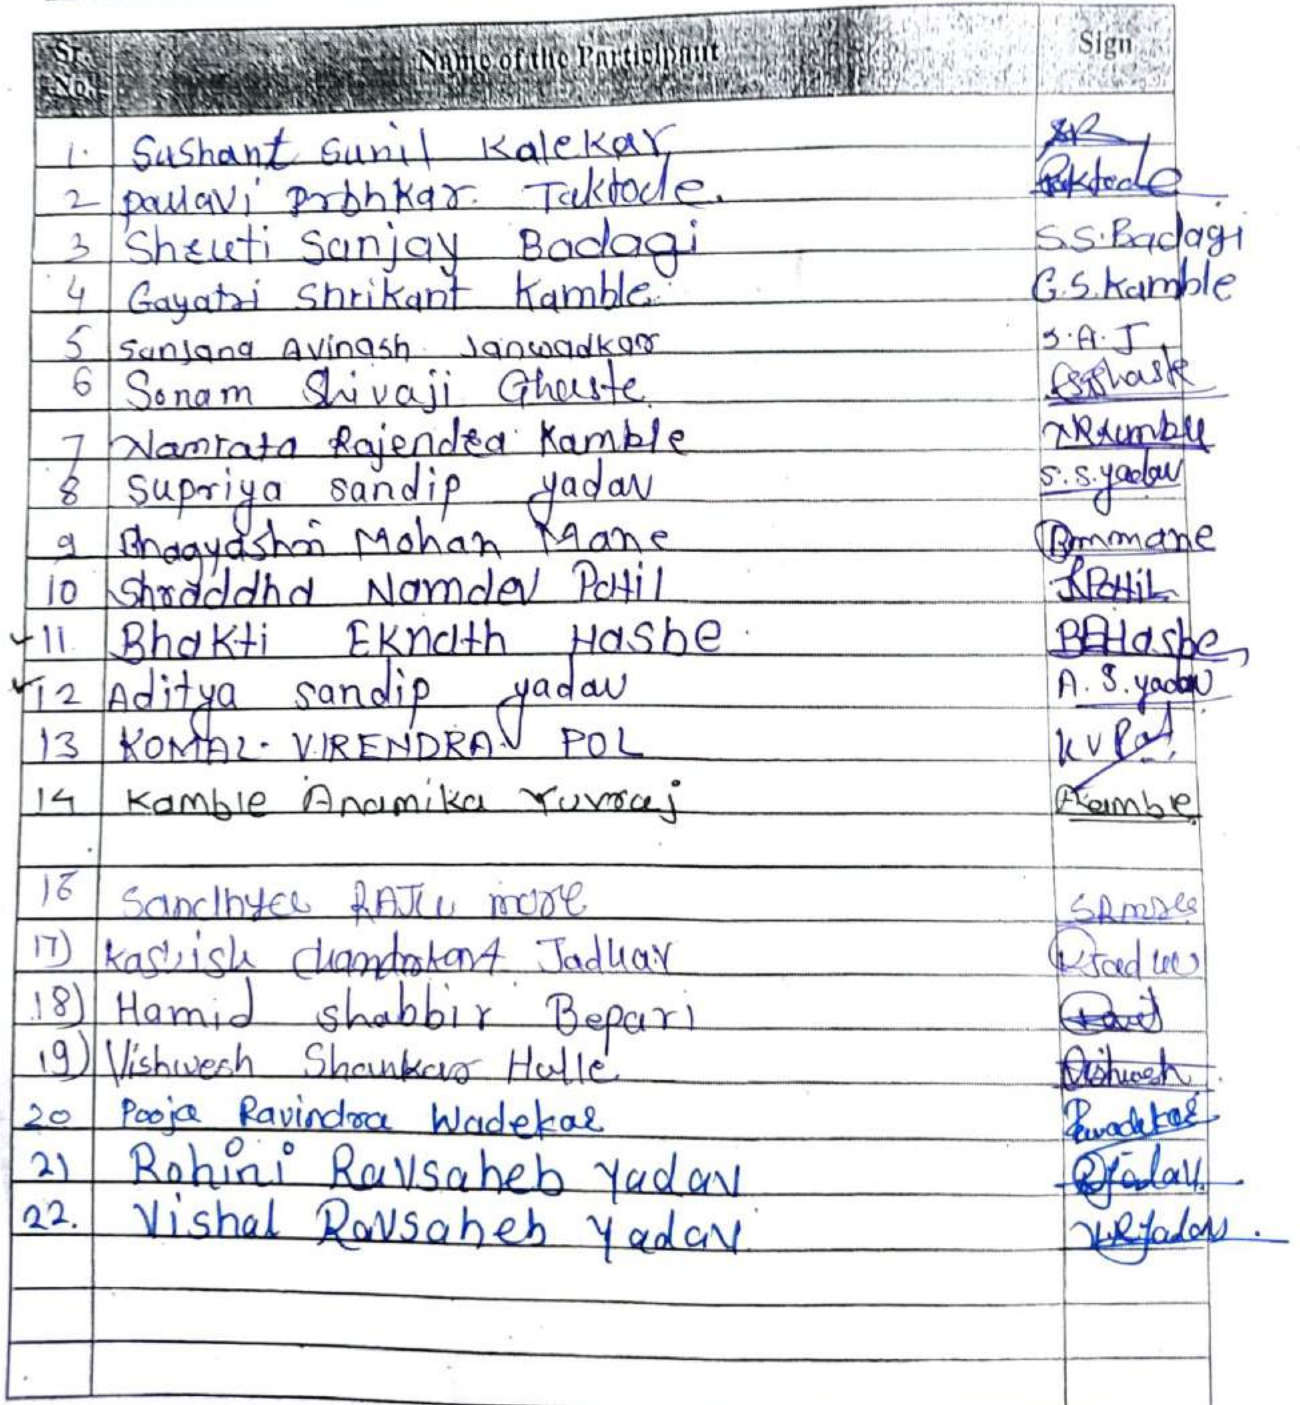 Sr. No. Name of the Participant Sign
1. Sushant Sunil Kalekar
2 pallavi Prbhkar. Taktode. Taktode
3 Shruti Sanjay Badagi S.S.Badagi
4 Gayatri Shrikant Kamble. G.S.Kamble
5 Sanjana Avinash Janwadkar S.A.J
6 Sonam Shivaji Ghaste
7 Namrata Rajendra Kamble
8 Supriya sandip yadav S.S.yadav
9 Bhagyashri Mohan Mane Bmmane
10 Shraddha Namdev Patil
11. Bhakti Eknath Hasbe BEHasbe
12 Aditya sandip yadav A.S.yadav
13 KOMAL. VIRENDRA POL
14 Kamble Anamika Yuvraj Akamble
16 Sandhya RAJU more SRmore
17) Kashish Chandrakant Jadhav
18) Hamid shabbir Bepari
19) Vishwesh Shankar Halle Vishwesh
20 Pooja Ravindra Wadekar Pwadekar
21 Rohini Ravsaheb Yadav RYadav
22. Vishal Ravsaheb Yadav VRYadav